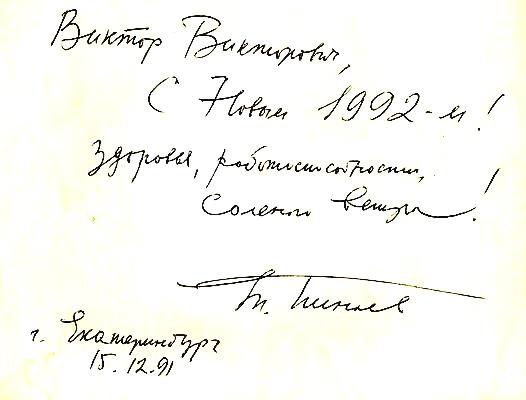 Виктор Викторович,
С Новым 1992-м!
Здоровья, работоспособности,
Соленого ветра!
г. Екатеринбург
15.12.91